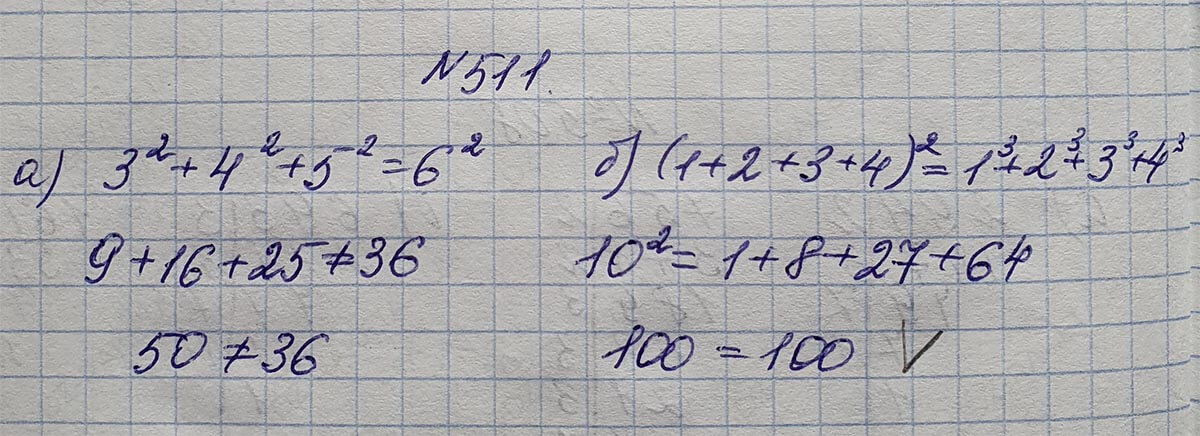 №511.
а) 3² + 4² + 5² = 6²
9 + 16 + 25 ≠ 36
50 ≠ 36
б) (1 + 2 + 3 + 4)² = 1³ + 2³ + 3³ + 4³
10² = 1 + 8 + 27 + 64
100 = 100 V